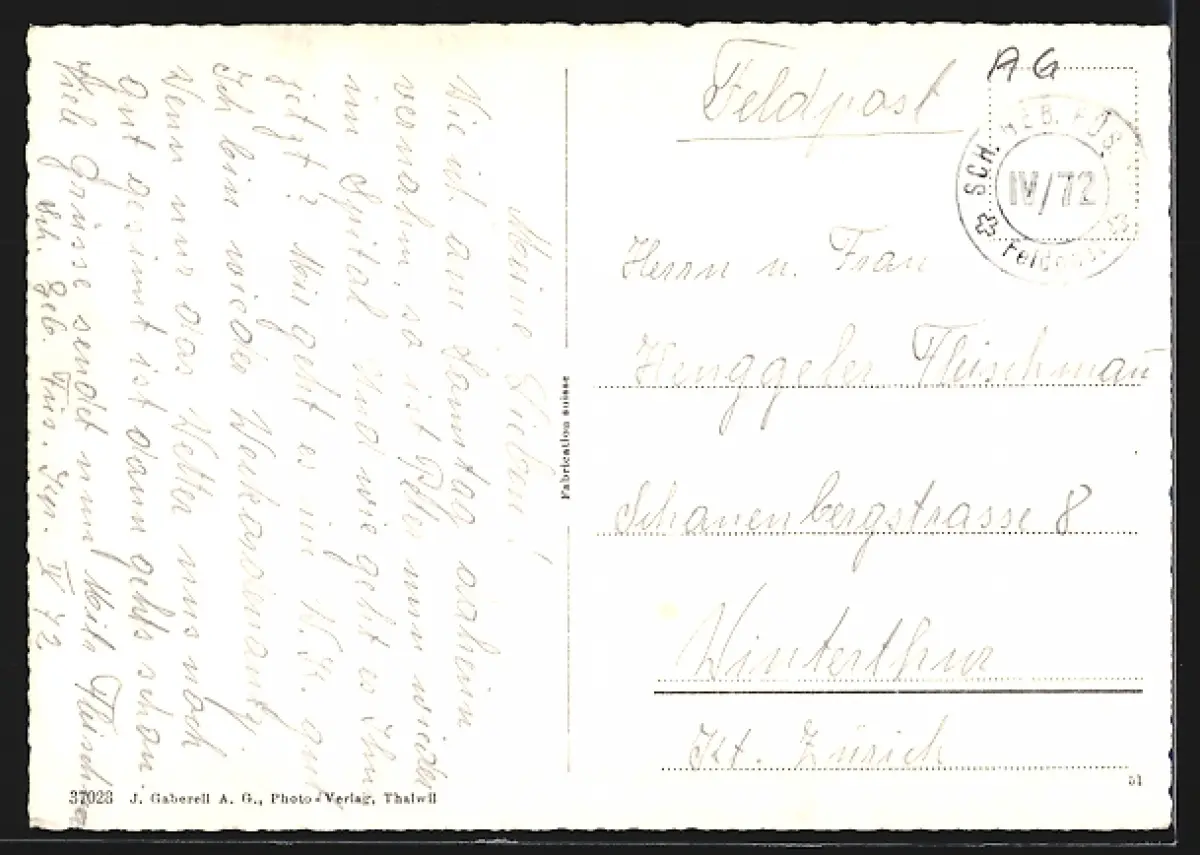 Meine Lieben!
Wie ich am Samstag daheim
vernahm, so ist Peter nun wieder
im Spital. Und wie geht es Ihm
jetzt? Mir geht es im W.K. gut,
Ich bin wieder
Wenn nur das Wetter uns noch
gut gesinnt ist dann gehts schon.
Viele Grüsse sendet nun
Geb. Füs. IV 72
Fabrication suisse
37023 J. Gaberell A. G., Photo-Verlag, Thalwil
AG
Feldpost
SCH. GEB. FÜS.
IV/72
Feldpost
Herrn u. Frau
Henggeler Fleischmañ
Schauenbergstrasse 8
Winterthur
Kt. Zürich
51